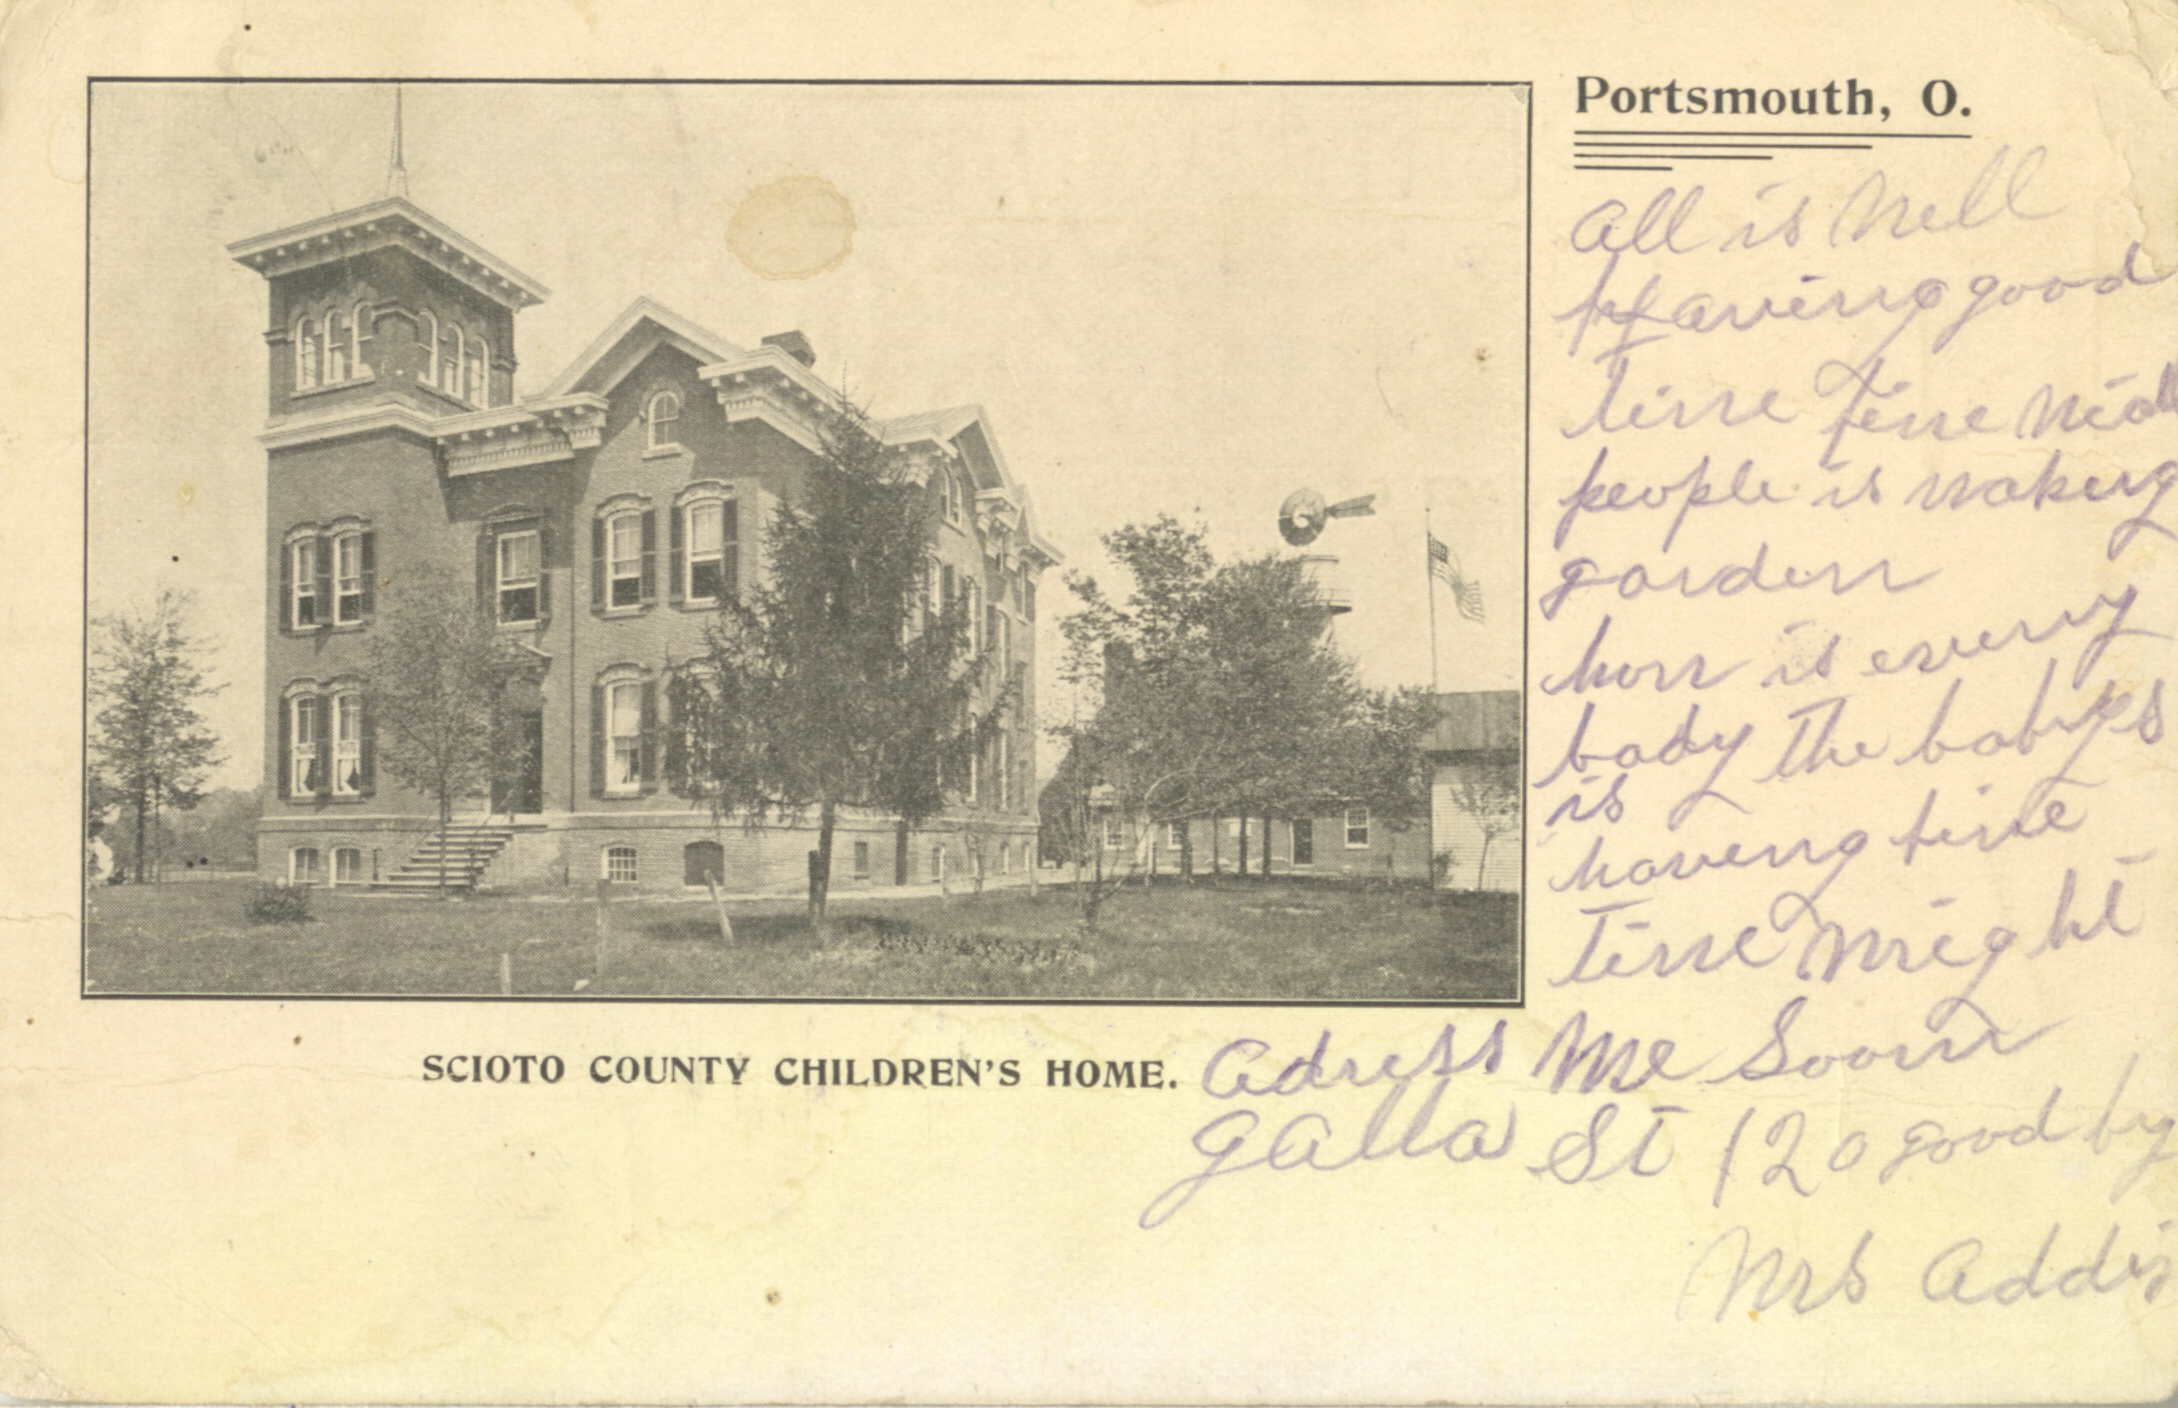 Portsmouth, O.
All is Well
Having good
time fine
people is making
garden
how is every
body The babyes
is
having fine
Time Wright
Adress Me Soon
Galla St 120 good by
Mrs Addis
SCIOTO COUNTY CHILDREN'S HOME.